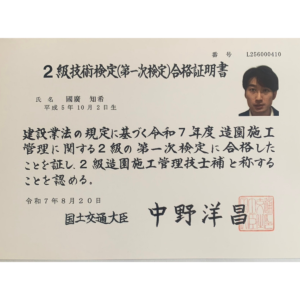 番 号 L256000410
2級技術検定(第一次検定)合格証明書
氏 名 國廣 知希
平成5年10月2日生
建設業法の規定に基づく令和7年度造園施工
管理に関する2級の第一次検定に合格した
ことを証し、2級造園施工管理技士補と称する
ことを認める。
令和7年8月20日
国土交通大臣 中野洋昌